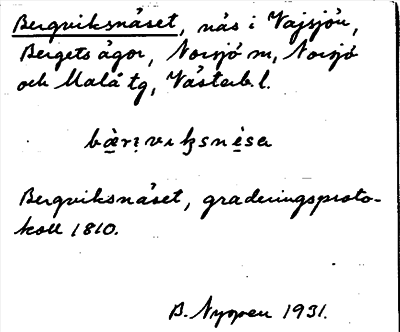 Bergviksnäset, näs i Vajsjön,
Bergets ägor, Norsjö sn, Norsjö
och Malå tg, Västerb. l.
Bergviksnäset, graderingsproto-
koll 1810.
1931.